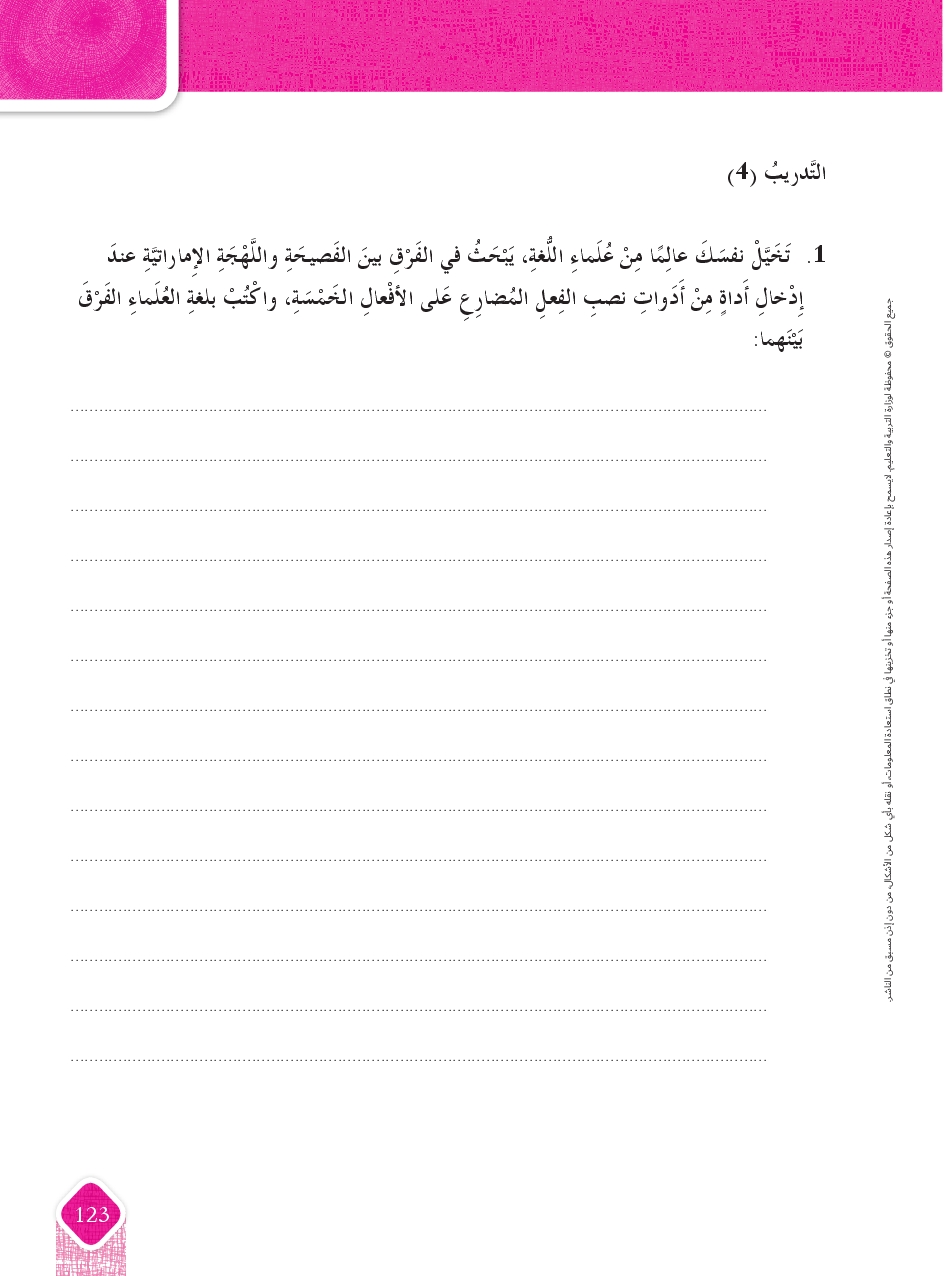 التَّدريبُ (4)
1. تَخَيَّلْ نفسَكَ عالِمًا مِنْ عُلَماءِ اللُّغةِ، يَبْحَثُ في الفَرْقِ بينَ الفَصيحَةِ واللَّهْجَةِ الإماراتيَّةِ عندَ
إِدْخالِ أَداةٍ مِنْ أَدَواتِ نصبِ الفِعلِ المُضارِعِ عَلى الأفْعالِ الخَمْسَةِ، واكْتُبْ بلغةِ العُلَماءِ الفَرْقَ
بَيْنَهما:
جميع الحقوق © محفوظة لوزارة التربية والتعليم. لايسمح بإعادة إصدار هذه الصفحة أو جزء منها أو تخزينها في نطاق استعادة المعلومات، أو نقله بأي شكل من الأشكال، من دون إذن مسبق من الناشر.
123